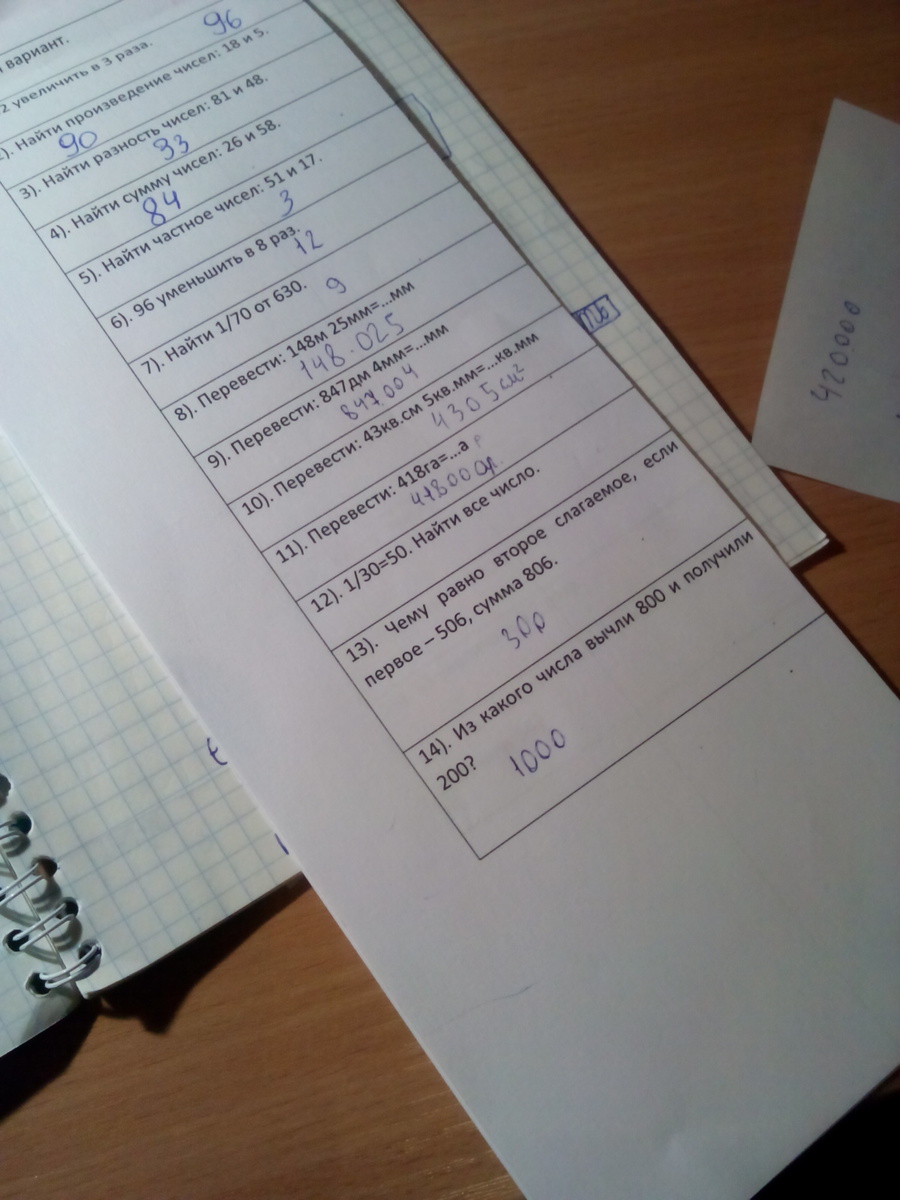 вариант.
2 увеличить в 3 раза. 96
2). Найти произведение чисел: 18 и 5.
90
3). Найти разность чисел: 81 и 48.
33
4). Найти сумму чисел: 26 и 58.
84
5). Найти частное чисел: 51 и 17.
3
6). 96 уменьшить в 8 раз.
12
7). Найти 1/70 от 630.
9
8). Перевести: 148м 25мм=...мм
148.025
9). Перевести: 847дм 4мм=...мм
847.004
10). Перевести: 43кв.см 5кв.мм=...кв.мм
4305см²
11). Перевести: 418га=...а р
41800ар.
12). 1/30=50. Найти все число.
13). Чему равно второе слагаемое, если
первое – 506, сумма 806.
300
14). Из какого числа вычли 800 и получили
200?
1000
420000